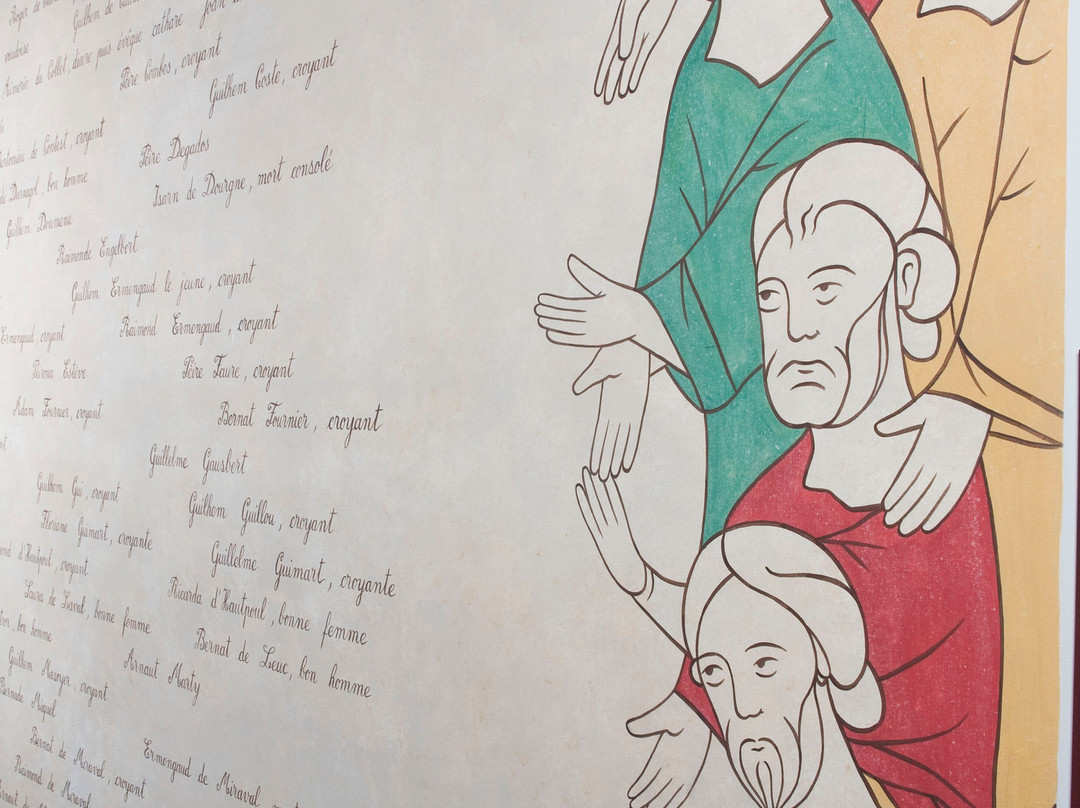 Roger de
Guilhem de
vaudoise
Aimeric du Collet, diacre puis évêque cathare
Jean
Pèire Combes, croyant
Guilhem Coste, croyant
de Contest, croyant
Pèire Degados
bon homme
Isarn de Dourgne, mort consolé
Guilhem Doumenc
Raimonde Engelbert
Guilhem Ermengaud le jeune, croyant
Ermengaud, croyant
Raimond Ermengaud, croyant
Estève
Pèire Faure, croyant
Adam Fournier, croyant
Bernat Fournier, croyant
Guillelme Gausbert
Guilhem Gui, croyant
Guilhem Guillou, croyant
Floriane Guimart, croyante
Guillelme Guimart, croyante
d'Hautpoul, croyant
Ricarda d'Hautpoul, bonne femme
Laura de Laval, bonne femme
Bernat de Leuc, bon homme
bon homme
Arnaut Marty
Guilhem Masoyer, croyant
Miquel
Bernat de Miraval, croyant
Ermengaud de Miraval
Raimond de Miraval